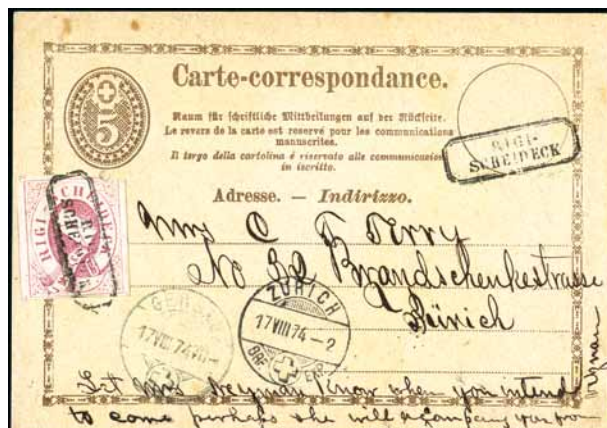 Carte-correspondance.
5
Raum für schriftliche Mittheilungen auf der Rückseite.
Le revers de la carte est réservé pour les communications
manuscrites.
Il tergo della cartolina é riservato alle communicazioni
in iscritto.
RIGI-
SCHEIDECK
Adresse. — Indirizzo.
RIGI-SCHEIDECK
Mrs C F Terry
No Brandschenkestrasse
Zürich
GERSAU
17 VIII 74
ZÜRICH
17 VIII 74 - 2
Let Mrs Neyman know when you intend
to come perhaps she will accompany you